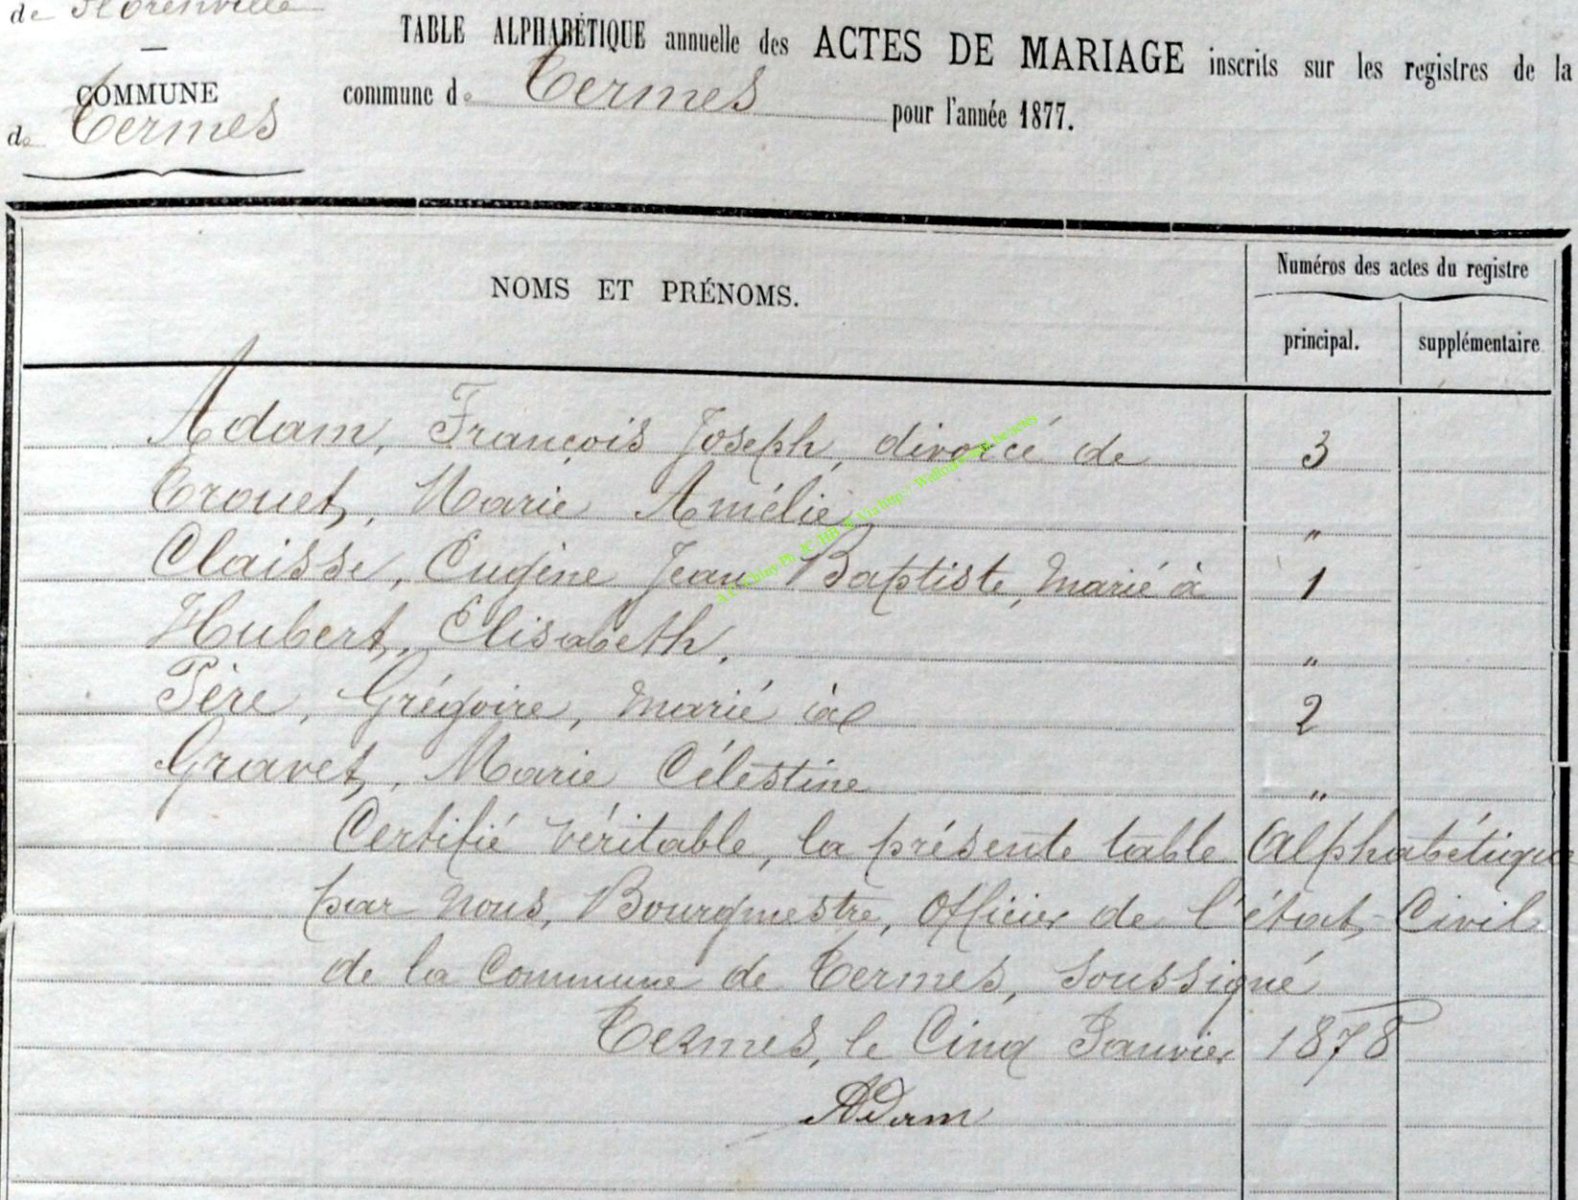 de Florenville
COMMUNE
de Termes
TABLE ALPHABÉTIQUE annuelle des ACTES DE MARIAGE inscrits sur les registres de la
commune de Termes pour l'année 1877.
NOMS ET PRÉNOMS.
Numéros des actes du registre
principal. supplémentaire
Adam, François Joseph, divorcé de 3
Crouet, Marie Amélie "
Claisse, Eugène Jean Baptiste, marié à 1
Hubert, Elisabeth. "
Père, Grégoire, marié à 2
Gravet, Marie Célestine "
Certifié véritable, la présente table alphabétique
par nous, Bourgmestre, Officier de l'état-Civil
de la Commune de Termes, soussigné
Termes, le Cinq Janvier 1878
ADam